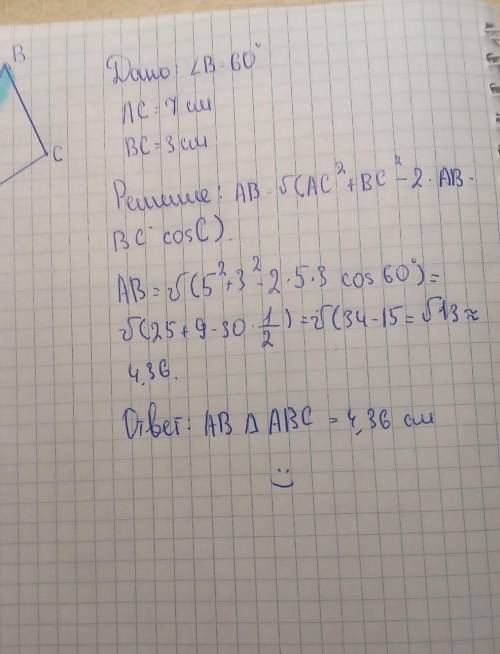 B
C
Дано: ∠B - 60°
AC = 7 см
BC = 3 см
Решение: AB - √(AC² + BC² - 2 · AB ·
BC · cosC).
AB = √(5² + 3² - 2 · 5 · 3 cos 60°) =
√(25 + 9 - 30 · 1/2) = √(34 - 15 = √13 ≈
4,36.
Ответ: AB Δ ABC = 4,36 см